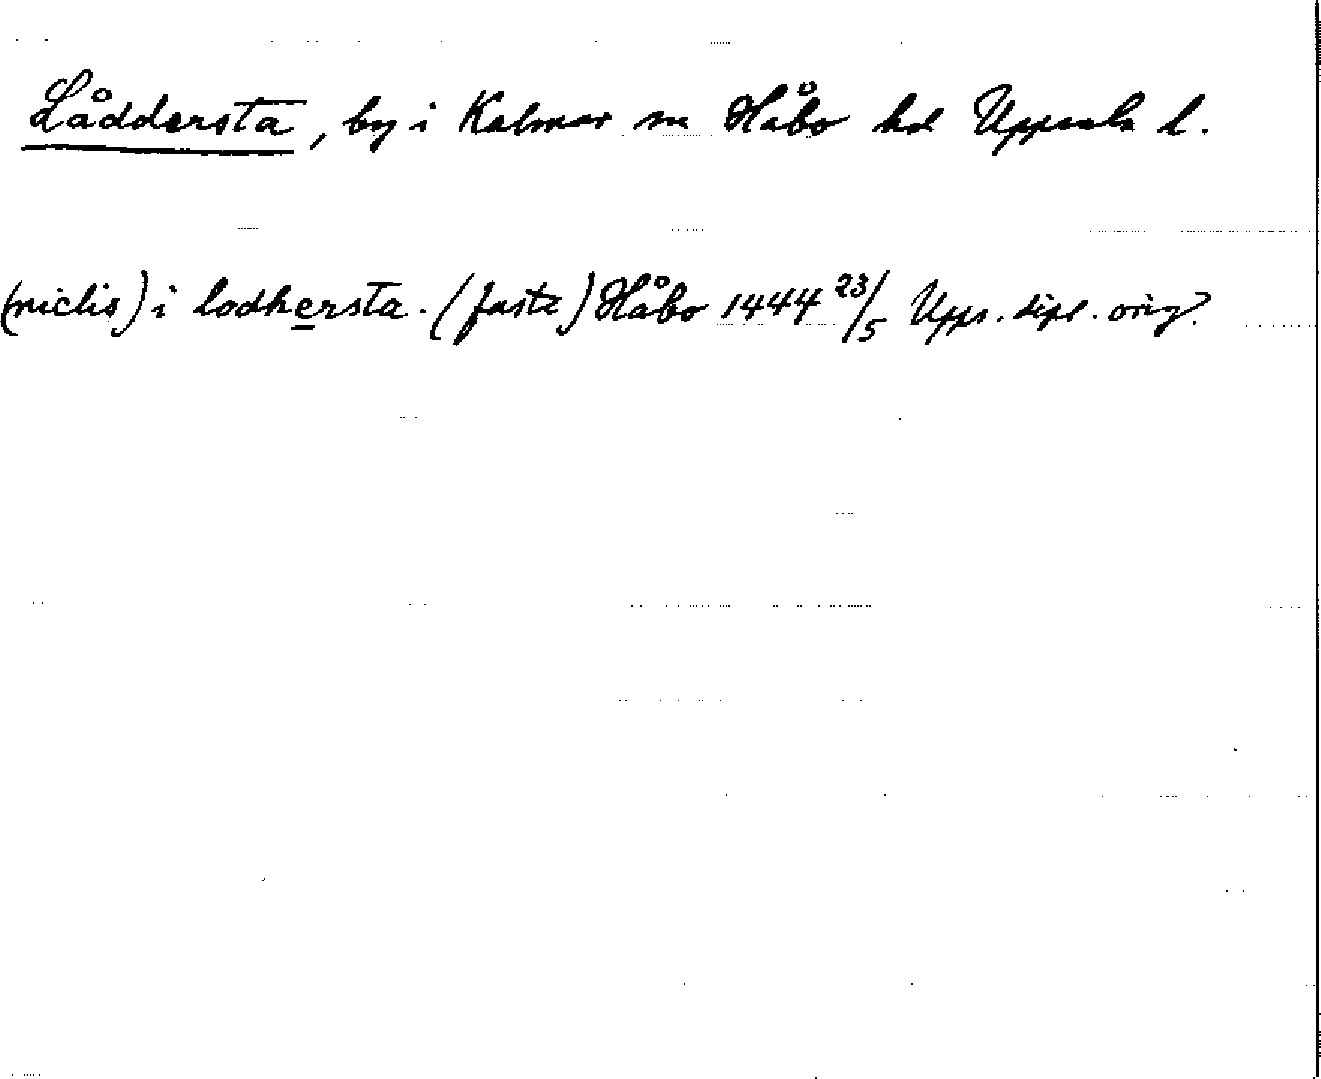 Låddersta, by i Kalmar sn Håbo hd Uppsala l.
(niclis) i lodhersta. (faste) Håbo 1444 23/5 Upps. dipl. orig.